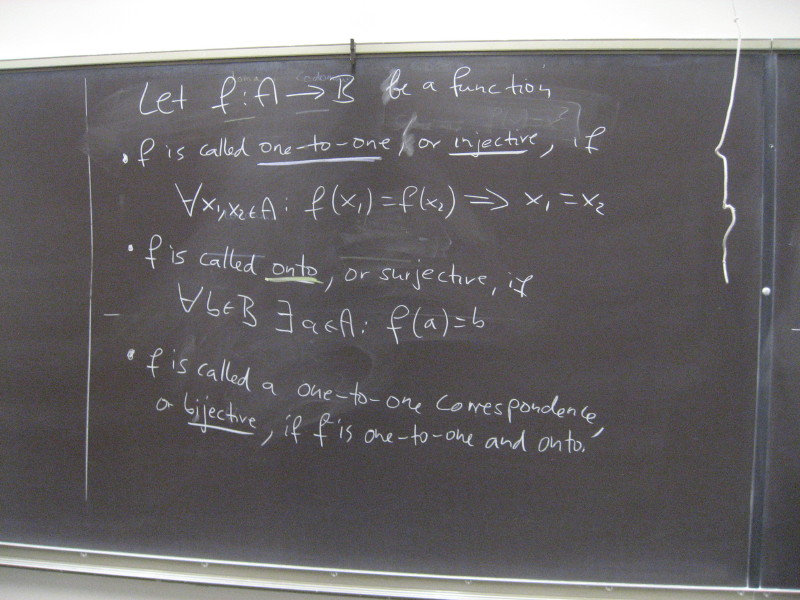 Let f: A → B be a function
• f is called one-to-one, or injective, if
∀x₁,x₂∈A: f(x₁)=f(x₂) ⟹ x₁=x₂
• f is called onto, or surjective, if
∀b∈B ∃a∈A: f(a)=b
• f is called a one-to-one correspondence,
or bijective, if f is one-to-one and onto.